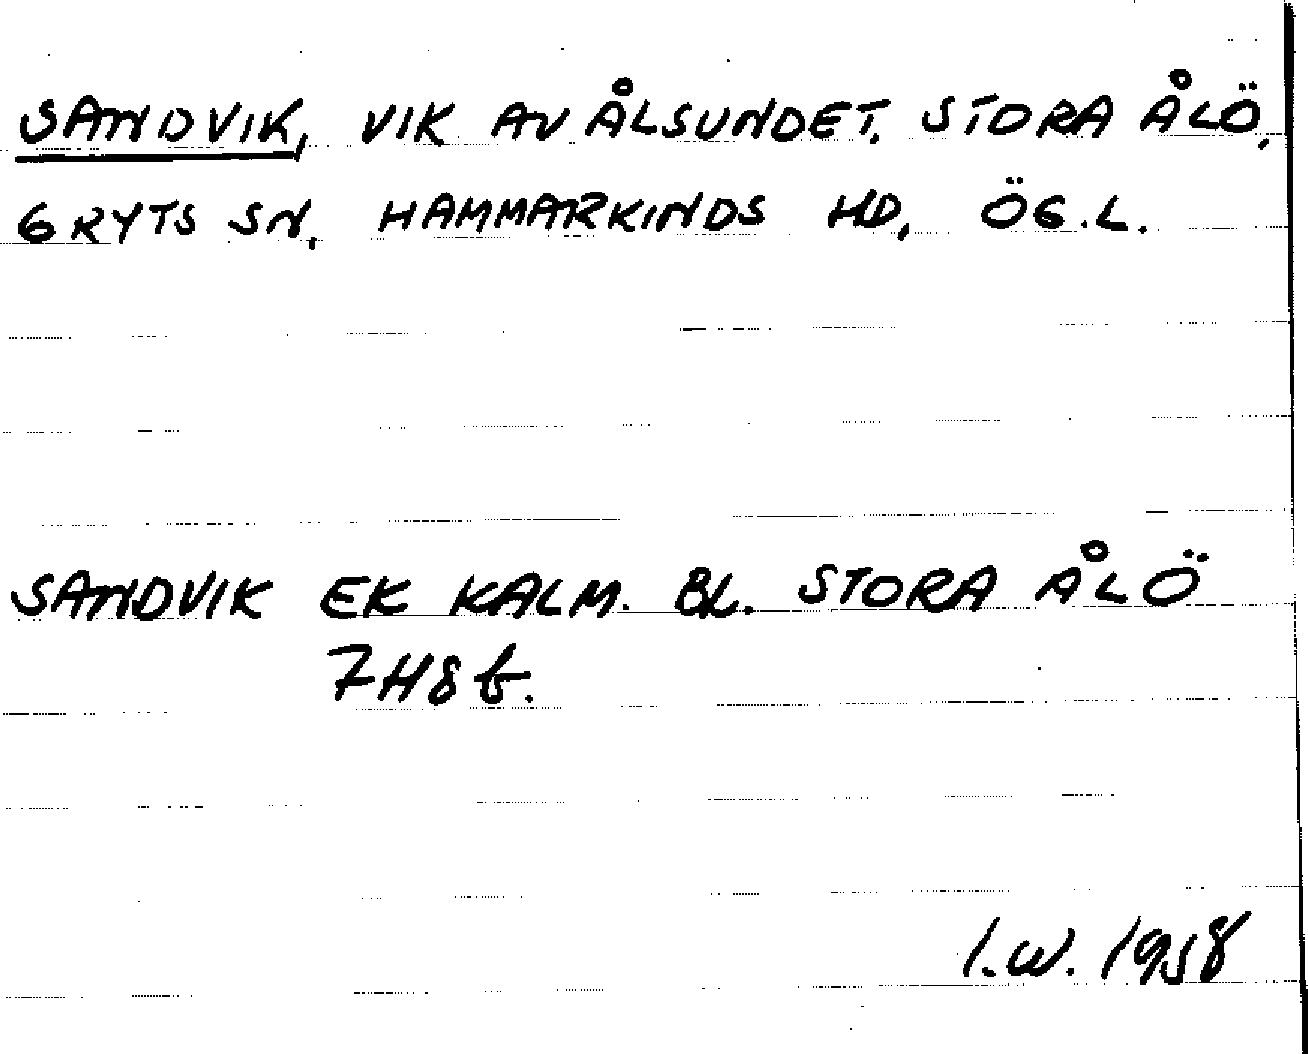 SANDVIK, VIK AV ÅLSUNDET, STORA ÅLÖ,
GRYTS SN, HAMMARKINDS HD, ÖG.L.
SANDVIK EK KALM. BL. STORA ÅLÖ
7H8b.
I.W. 1958